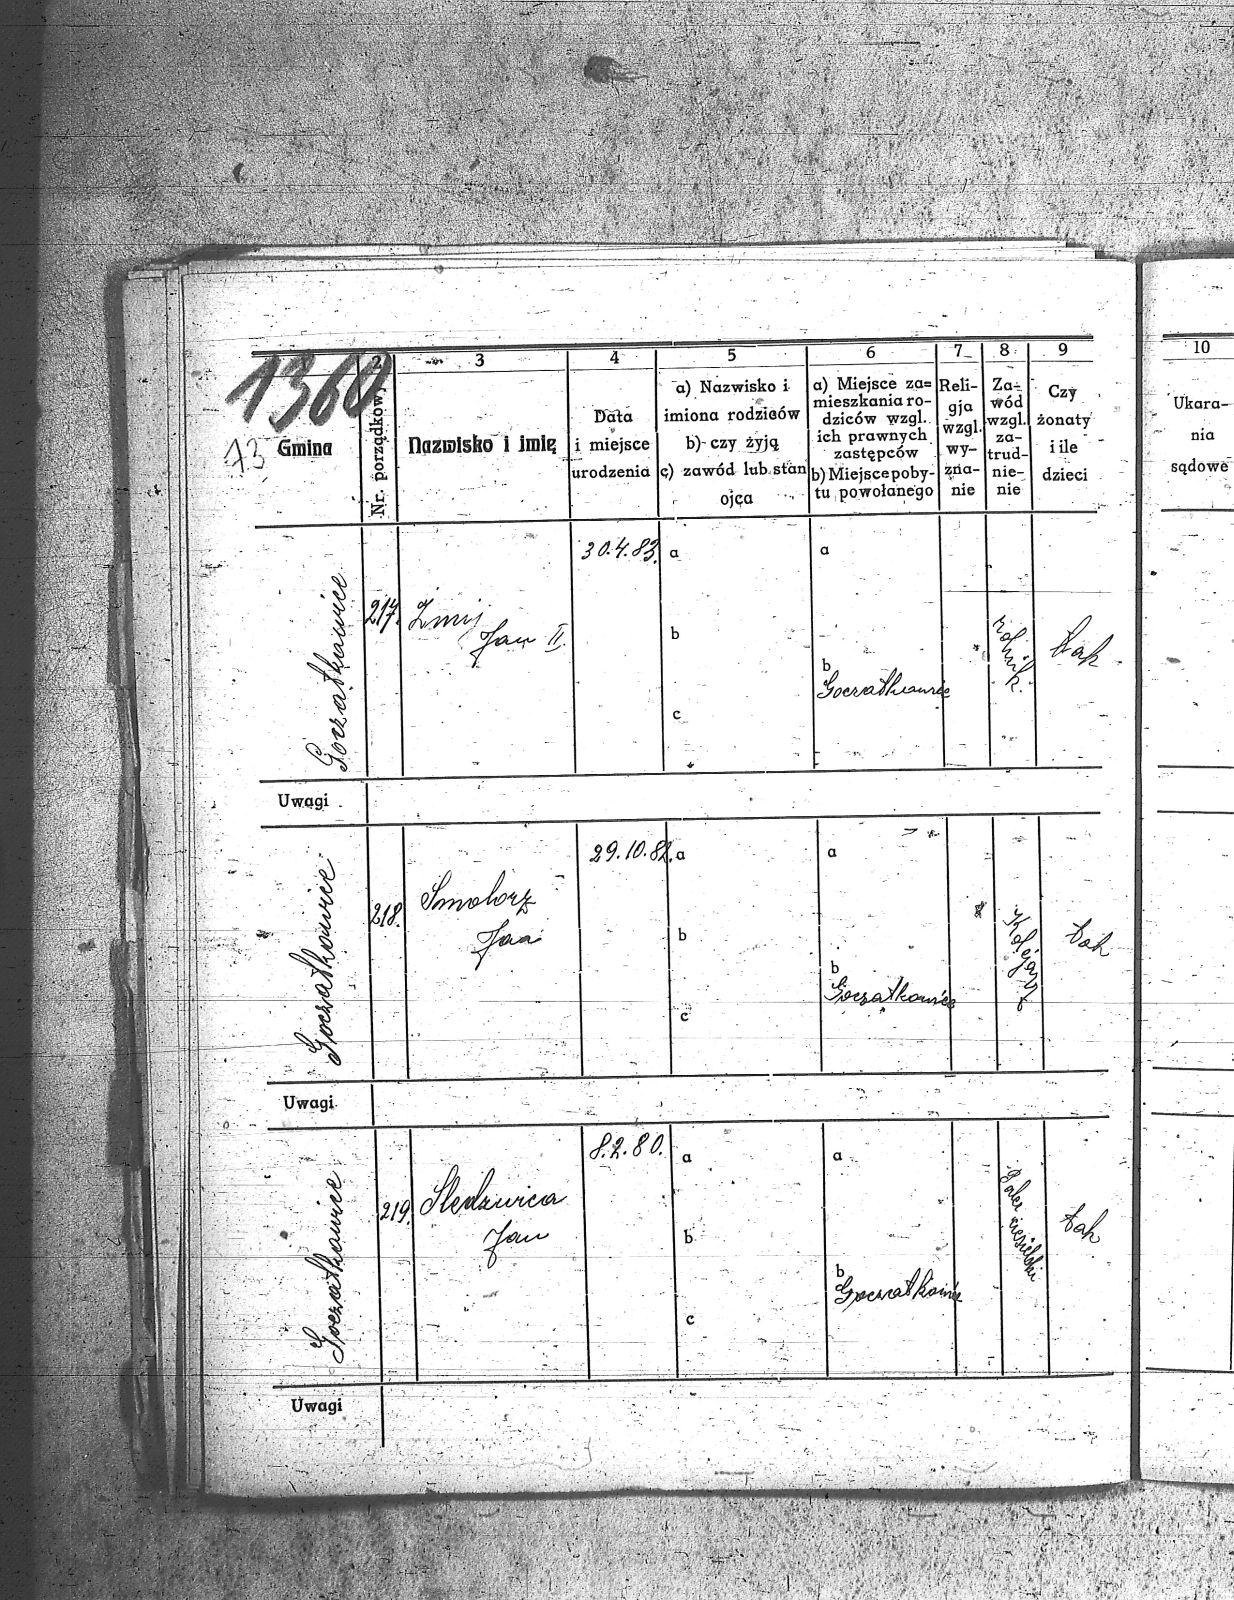 1360
73
2 3 4 5 6 7 8 9 10
Gmina
Nr. porządkowy
Nazwisko i imię
Data
i miejsce
urodzenia
a) Nazwisko i
imiona rodziców
b) czy żyją
c) zawód lub stan
ojca
a) Miejsce za=
mieszkania ro-
dziców wzgl.
ich prawnych
zastępców
b) Miejsce poby-
tu powołanego
Reli-
gja
wzgl.
wy-
zna-
nie
Za-
wód
wzgl.
za-
trud-
nie-
nie
Czy
żonaty
i ile
dzieci
Ukara-
nia
sądowe
Goczałkowice
217.
Żmij
Jan II
30.4.83.
a
b
c
a
b
Goczałkowice
rolnik
tak
Uwagi
Goczałkowice
218.
Smolorz
Jan
29.10.82.
a
b
c
a
b
Goczałkowice
Kolejarz
tak
Uwagi
Goczałkowice
219.
Sledziwica
Jan
8.2.80.
a
b
c
a
b
Goczałkowice
ciesielski
tak
Uwagi